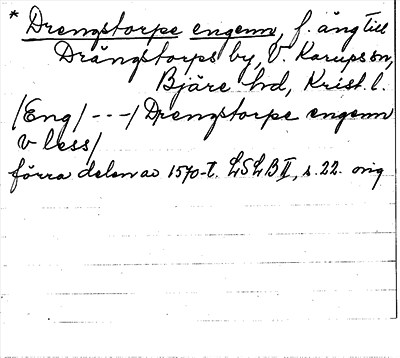 * Drengstorpe engenn, f. äng till
Drängstorps by, V. Karups sn,
Bjäre hd, Krist. l.
/Eng/ --- / Drengstorpe engenn
v less/
förra delen av 1570-t. LSLB II, s. 22. orig